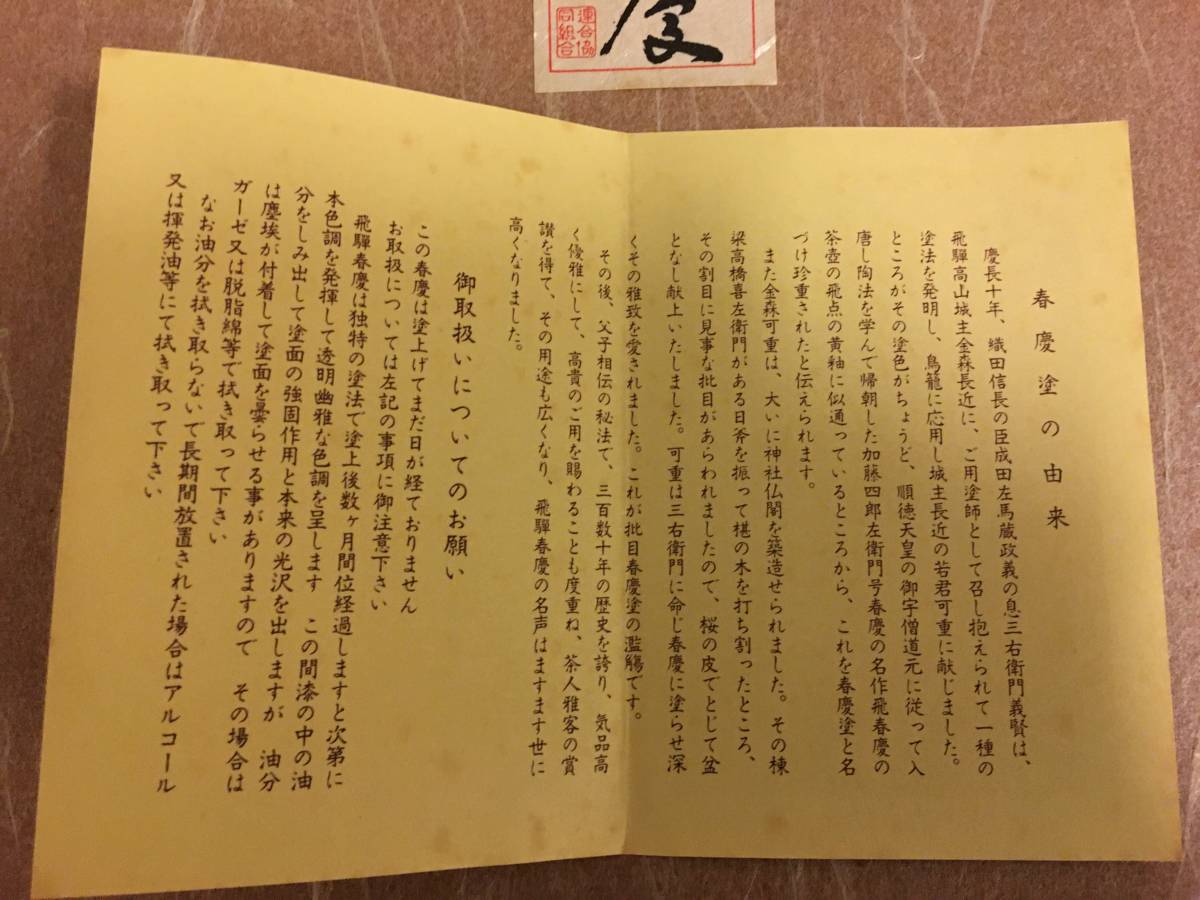 慶
連合協
同組合
春慶塗の由来
慶長十年、織田信長の臣成田左馬蔵政義の息三右衛門義賢は、
飛騨高山城主金森長近に、ご用塗師として召し抱えられて一種の
塗法を発明し、鳥籠に応用し城主長近の若君可重に献じました。
ところがその塗色がちょうど、順徳天皇の御宇僧道元に従って入
唐し陶法を学んで帰朝した加藤四郎左衛門号春慶の名作飛春慶の
茶壺の飛点の黄釉に似通っているところから、これを春慶塗と名
づけ珍重されたと伝えられます。
また金森可重は、大いに神社仏閣を築造せられました。その棟
梁高橋喜左衛門がある日斧を振って椹の木を打ち割ったところ、
その割目に見事な批目があらわれましたので、桜の皮でとじて盆
となし献上いたしました。可重は三右衛門に命じ春慶に塗らせ深
くその雅致を愛されました。これが批目春慶塗の濫觴です。
その後、父子相伝の秘法で、三百数十年の歴史を誇り、気品高
く優雅にして、高貴のご用を賜わることも度重ね、茶人雅客の賞
讃を得て、その用途も広くなり、飛騨春慶の名声はますます世に
高くなりました。
御取扱いについてのお願い
この春慶は塗上げてまだ日が経ておりません
お取扱については左記の事項に御注意下さい
飛騨春慶は独特の塗法で塗上後数ヶ月間位経過しますと次第に
本色調を発揮して透明幽雅な色調を呈します この間漆の中の油
分をしみ出して塗面の強固作用と本来の光沢を出しますが 油分
は塵埃が付着して塗面を曇らせる事がありますので その場合は
ガーゼ又は脱脂綿等で拭き取って下さい
なお油分を拭き取らないで長期間放置された場合はアルコール
又は揮発油等にて拭き取って下さい